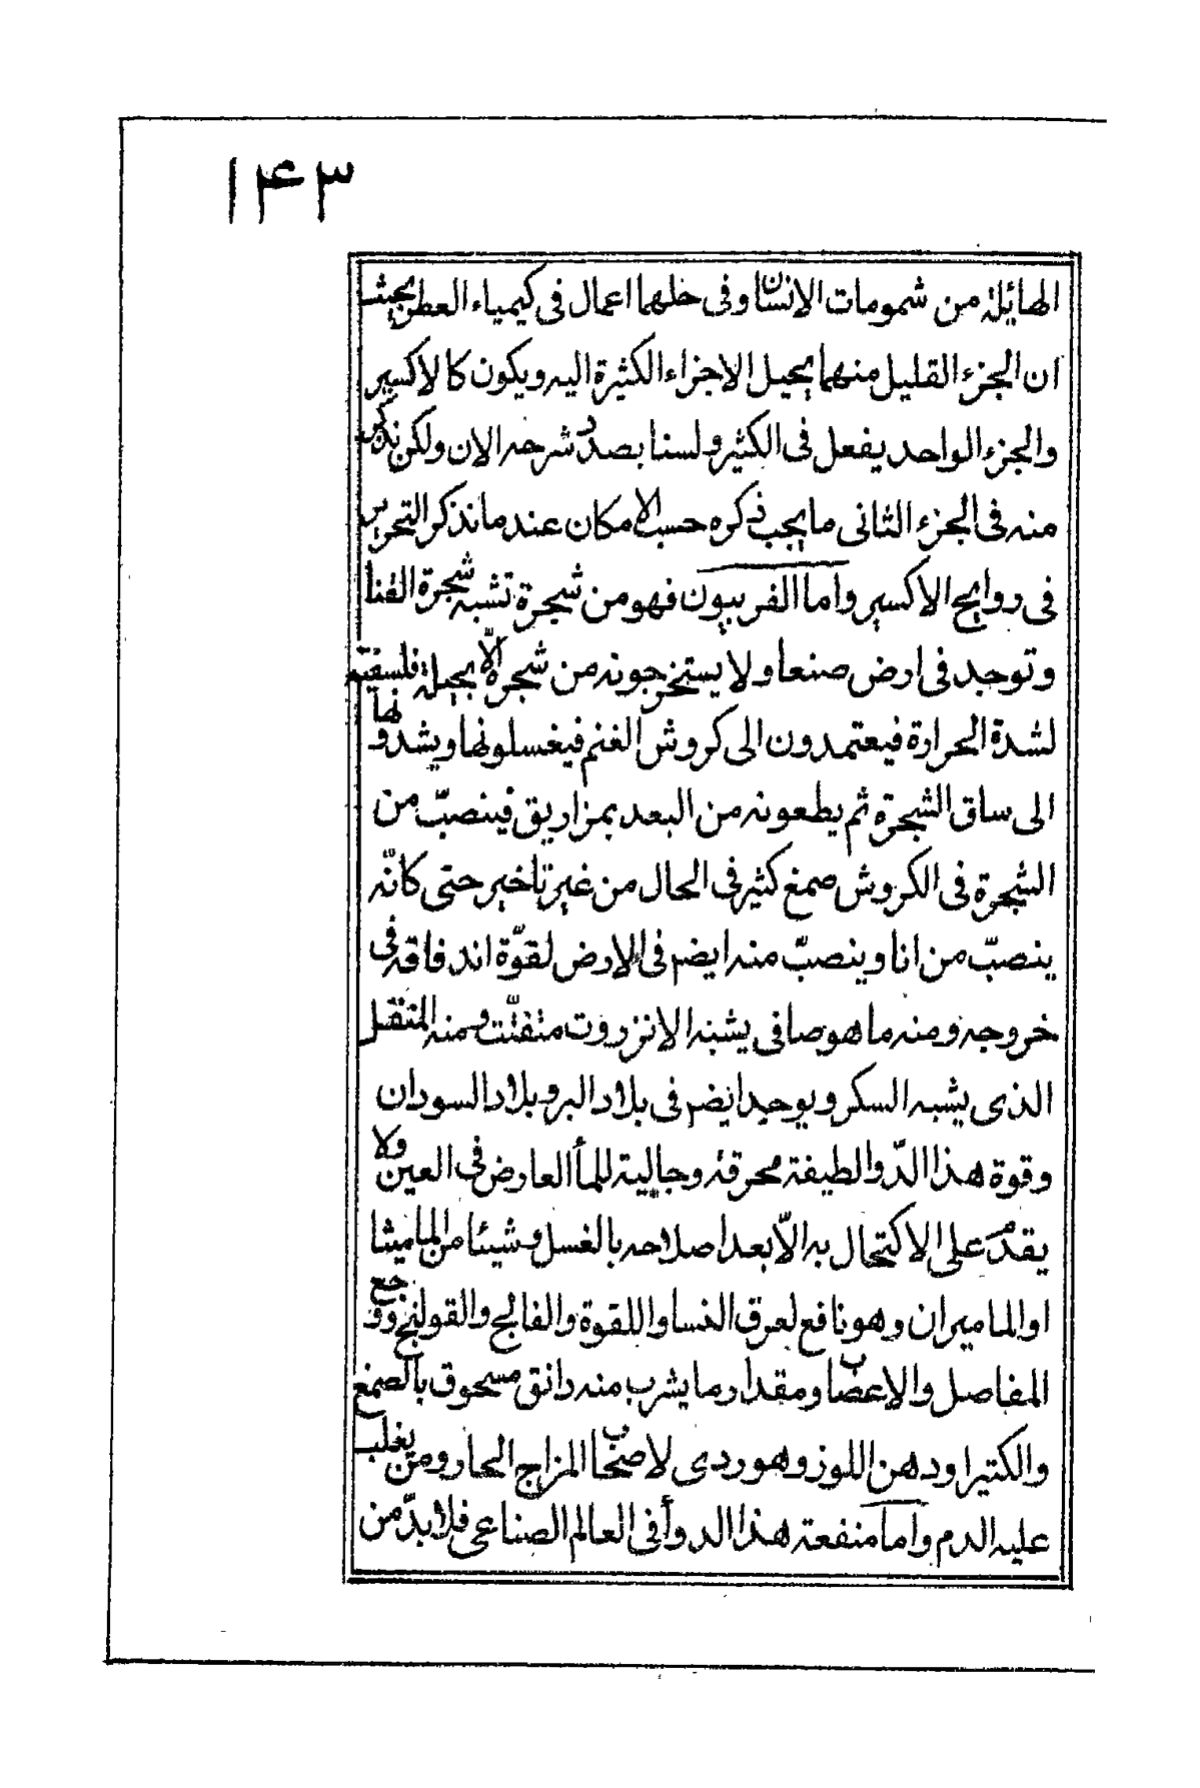 ١٤٣
الهائلة من شمومات الإنسان وفى خلها اعمال فى كيمياء العطر بحيث
ان الجزء القليل منهما يحيل الاجزاء الكثيرة اليه ويكون كالاكسير
والجزء الواحد يفعل فى الكثير ولسنا بصدد شرحه الان ولكن نذكر
منه فى الجزء الثانى ما يجب ذكره حسب الامكان عند ما نذكر التحرير
فى روايح الاكسير واما الفربيون فهو من شجرة تشبه شجرة القثا
وتوجد فى ارض صنعا ولا يستخرجونه من شجره الّا بحيلة فلسفية
لشدة الحرارة فيعتمدون الى كروش الغنم فيغسلونها ويشدونها
الى ساق الشجرة ثم يطعونه من البعد بمزاريق فينصبّ من
الشجرة فى الكروش صمغ كثير فى الحال من غير تاخير حتى كانّه
ينصبّ من انا وينصبّ منه ايضر فى الارض لقوّة اندفاقه فى
خروجه ومنه ما هو صافى يشبه الانزروت متفتّت ومنه المتقل
الذى يشبه السكر ويوجد ايضر فى بلاد البر وبلاد السودان
وقوة هذا الدّوا لطيفة محرقة وجالية للمأ العارض فى العين ولا
يقدم على الاكتحال به الّا بعد اصلاحه بالغسل وشيئا من الماميثا
او الماميران وهو نافع لعرق النسا واللقوة والفالج والقولنج ووجع
المفاصل والاعصاب ومقدار ما يشرب منه دانق مسحوق بالصمغ
والكتيرا ودهن اللوز وهو ردى لاصحاب المزاج الحار ومن يغلب
عليه الدم واما منفعة هذا الدوأ فى العالم الصناعى فلا بدّ من